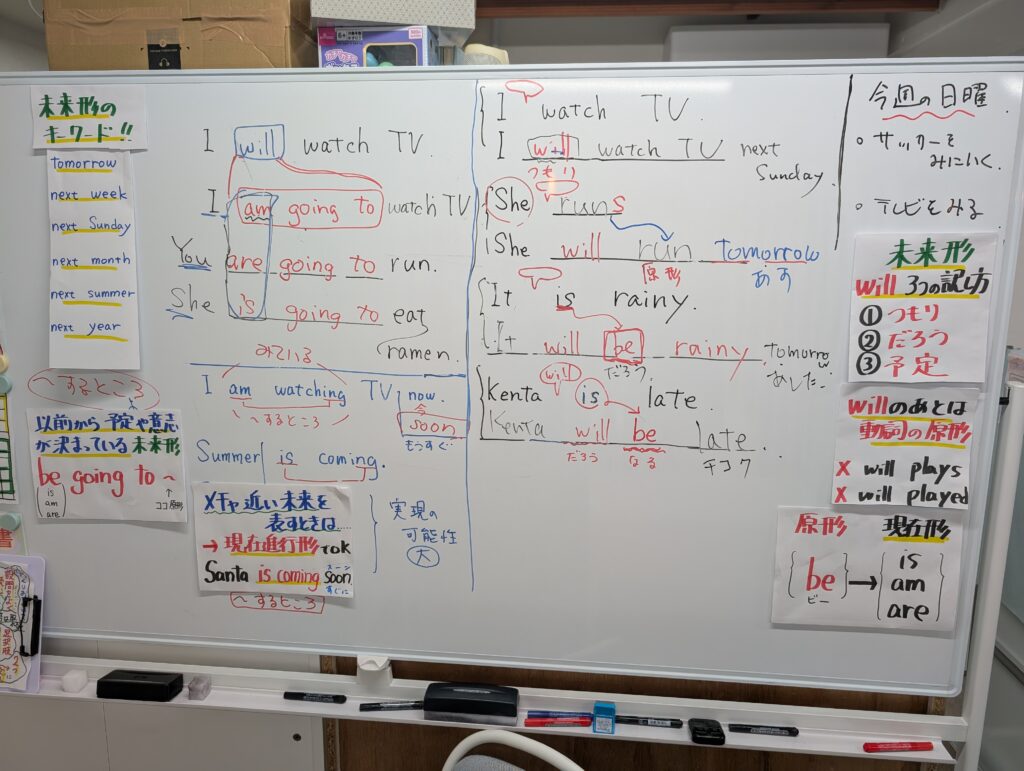 未来形の
キーワード!!
tomorrow
next week
next Sunday
next month
next summer
next year
〜するところ
以前から予定や意志
が決まっている未来形
be going to 〜
is
am
are
↑
ココ原形
I will watch TV.
I am going to watch TV
You are going to run.
She is going to eat
ramen.
みている
I am watching TV now.
今
〜するところ
soon
もうすぐ
Summer is coming.
メチャ近い未来を
表すときは......
→現在進行形でOK
Santa is coming soon
スーン
すぐに
〜するところ
実現の
可能性
大
I watch TV.
I will watch TV next
Sunday.
つもり
She runs
She will run tomorrow
原形
あす
It is rainy.
It will be rainy tomorrow
だろう
あした
will
Kenta is late.
Kenta will be late.
だろう
なる
チコク
今週の日曜
・サッカーを
みにいく。
・テレビをみる
未来形
will 3つの訳し方
①つもり
②だろう
③予定
willのあとは
動詞の原形
X will plays
X will played
原形
現在形
be
ビー
→
is
am
are